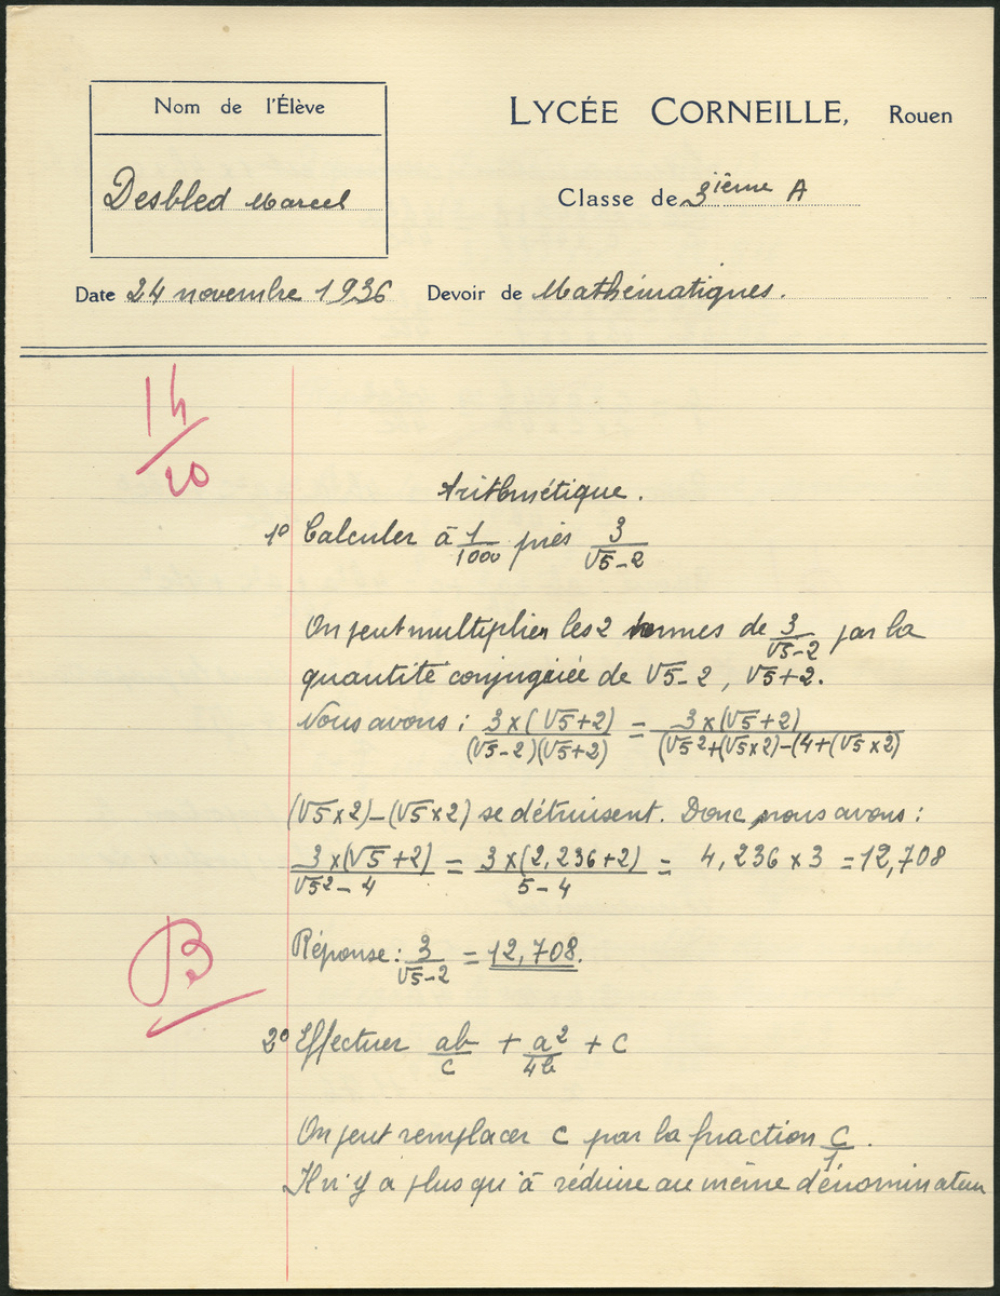 Nom de l'Élève
LYCÉE CORNEILLE, Rouen
Desbled Marcel
Classe de 3ième A
Date 24 novembre 1936 Devoir de Mathématiques.
14/20
Arithmétique.
1º Calculer à 1/1000 près 3/(√5-2)
On peut multiplier les 2 termes de 3/(√5-2) par la
quantité conjugéiée de √5-2, √5+2.
Nous avons : 3×(√5+2)/(√5-2)(√5+2) = 3×(√5+2)/(√5²+(√5×2)-(4+(√5×2)
(√5×2)-(√5×2) se détruisent. Donc, nous avons :
3×(√5+2)/√5²-4 = 3×(2,236+2)/5-4 = 4,236×3 = 12,708
B
Réponse : 3/(√5-2) = 12,708.
2º Effectuer ab/c + a²/4b + c
On peut remplacer c par la fraction c/1.
Il n'y a plus qu'à réduire au même dénominateur